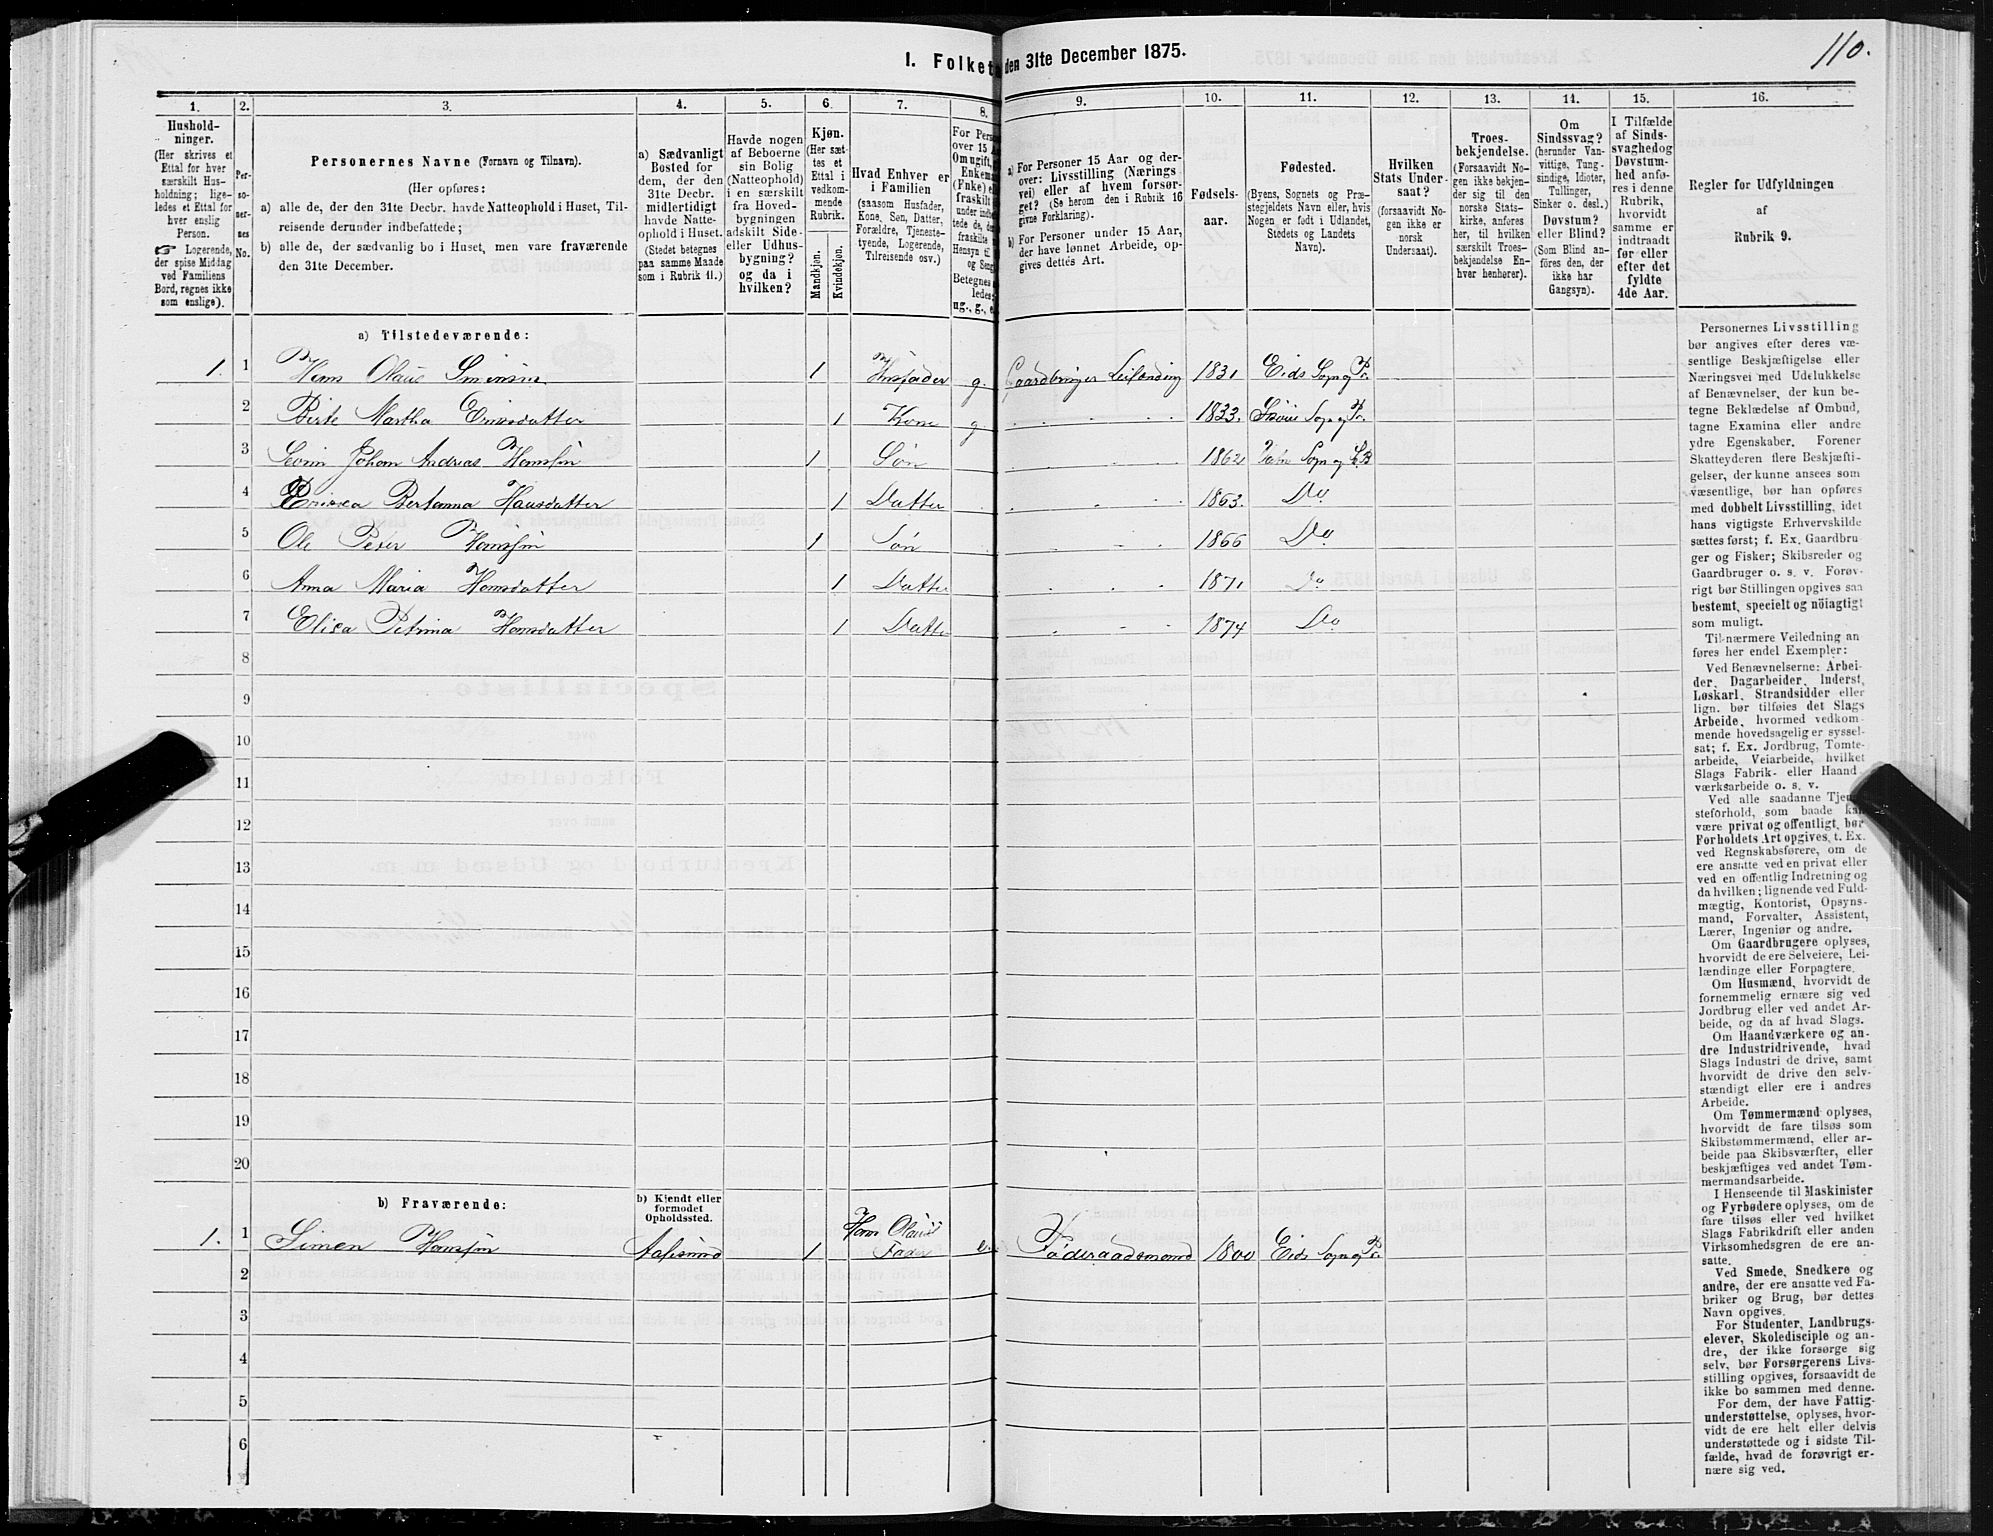 110.
1. Folket den 31te December 1875.
1. 2. 3. 4. 5. 6. 7. 8. 9. 10. 11. 12. 13. 14. 15. 16.
Hushold-
ninger.
(Her skrives et
Ettal for hver
særskilt Hus-
holdning; lige-
ledes et Ettal for
hver enslig
Person.
☞ Logerende,
der spise Middag
ved Familiens
Bord, regnes ikke
som enslige).
Per-
so-
ner-
nes
No.
Personernes Navne (Fornavn og Tilnavn).
(Her opføres:
a) alle de, der den 31te Decbr. havde Natteophold i Huset, Til-
reisende derunder indbefattede;
b) alle de, der sædvanlig bo i Huset, men vare fraværende
den 31te December.
a) Sædvanligt
Bosted for
dem, der den
31te Decbr.
midlertidigt
havde Natte-
ophold i Huset.
(Stedet betegnes
paa samme Maade
som i Rubrik 11.)
Havde nogen
af Beboerne
sin Bolig
(Natteophold)
i en særskilt
fra Hoved-
bygningen
adskilt Side-
eller Udhus-
bygning?
og da i
hvilken?
Kjøn.
(Her sæt-
tes et
Ettal i
vedkom-
mende
Rubrik.
Mandkjøn.
Kvindekjøn.
Hvad Enhver er
i Familien
(saasom Husfader,
Kone, Søn, Datter,
Forældre, Tjeneste-
tyende, Logerende,
Tilreisende osv.)
For Pers
over 15 A
Om ugift,
Enkema
(Fnke) e
fraskilt
under indb
tede de, de
fraskilte
Hensyn ti
og Seng
Betegnes
ledes:
ug., g., e
a) For Personer 15 Aar og der-
over: Livsstilling (Nærings
vei) eller af hvem forsør-
get? (Se herom den i Rubrik 16
givne Forklaring).
b) For Personer under 15 Aar,
der have lønnet Arbeide, op-
gives dettes Art.
Fødsels-
aar.
Fødested.
(Byens, Sognets og Præ-
stegjeldets Navn eller, hvis
Nogen er født i Udlandet,
Stedets og Landets
Navn).
Hvilken
Stats Under-
saat?
(forsaavidt No-
gen ikke er
norsk
Undersaat).
Troes-
bekjendelse.
(Forsaavidt No-
gen ikke bekjen-
der sig til den
norske Stats-
kirke, anføres
her, til hvilken
særskilt Troes-
bekjendelse En-
hver henhører).
Om
Sindssvag?
(herunder Van-
vittige, Tung-
sindige, Idioter,
Tullinger,
Sinker o. desl.)
Døvstum?
eller Blind?
(Som Blind an-
føres den, der
ikke har
Gangsyn).
I Tilfælde
af Sinds-
svaghedog
Døvstum-
hed anfø-
res i denne
Rubrik,
hvorvidt
samme er
indtraadt
før eller
efter det
fyldte
4de Aar.
Regler for Udfyldningen
af
Rubrik 9.
a) Tilstedeværende:
1. 1 Hans Olaus Simensen 1 Husfader g. Gaardbruger Leilending 1831 Eids Sogn og Pr.
2 Birte Martha 1 Kone g 1833. Sogn og Pr.
3 Johan Andreas Hanssøn 1 Søn 1862 Sogn og
4 Bertanna Hansdatter 1 Datter 1863. Do
5 Ole Peter Hanssøn 1 Søn 1866 Do
6 Anna Maria Hansdatter 1 Datter 1871 Do
7 Elisa Petrina Hansdatter 1 Datter 1874 Do
8
9
10
11
12
13
14
15
16
17
18
19
20
b) Fraværende:
b) Kjendt eller
formodet
Opholdssted.
1. 1 Simen Hanssøn Aalesund 1 Hans Olaus's
Fader e. Føderaadsmand 1800 Eids Sogn og Pr.
2
3
4
5
6
Personernes Livsstilling
bør angives efter deres væ-
sentlige Beskjæftigelse eller
Næringsvei med Udelukkelse
af Benævnelser, der kun be-
tegne Beklædelse af Ombud,
tagne Examina eller andre
ydre Egenskaber. Forener
Skatteyderen flere Beskjæfti-
gelser, der kunne ansees som
væsentlige, bør han opføres
med dobbelt Livsstilling, idet
hans vigtigste Erhvervskilde
sættes først; f. Ex. Gaardbru-
ger og Fisker; Skibsreder og
Gaardbruger o. s. v. Forøv-
rigt bør Stillingen opgives saa
bestemt, specielt og nöiagtigt
som muligt.
Til nærmere Veiledning an
føres her endel Exempler:
Ved Benævnelserne: Arbei-
der, Dagarbeider, Inderst,
Løskarl, Strandsidder eller
lign. bør tilføies det Slags
Arbeide, hvormed vedkom-
mende hovedsagelig er syssel-
sat; f. Ex. Jordbrug, Tomte-
arbeide, Veiarbeide, hvilket
Slags Fabrik- eller Haand
værksarbeide o. s. v.
Ved alle saadanne Tjene
steforhold, som baade kan
være privat og offentligt, bør
Forholdets Art opgives, t. Ex.
ved Regnskabsførere, om de
ere ansatte ved en privat eller
ved en offentlig Indretning og
da hvilken; lignende ved Fuld-
mægtig, Kontorist, Opsyns-
mand, Forvalter, Assistent,
Lærer, Ingeniør og andre.
Om Gaardbrugere oplyses,
hvorvidt de ere Selveiere, Lei-
lændinge eller Forpagtere.
Om Husmænd, hvorvidt de
fornemmelig ernære sig ved
Jordbrug eller ved andet Ar-
beide, og da af hvad Slags.
Om Haandværkere og an-
dre Industridrivende, hvad
Slags Industri de drive, samt
hvorvidt de drive den selv-
stændigt eller ere i andres
Arbeide.
Om Tømmermænd oplyses,
hvorvidt de fare tilsøs som
Skibstømmermænd, eller ar-
beide paa Skibsværfter, eller
beskjæftiges ved andet Tøm-
mermandsarbeide.
I Henseende til Maskinister
og Fyrbødere oplyses, om de
fare tilsøs eller ved hvilket
Slags Fabrikdrift eller anden
Virksomhedsgren de ere an-
satte.
Ved Smede, Snedkere og
andre, der ere ansatte ved Fa-
briker og Brug, bør dettes
Navn opgives.
For Studenter, Landbrugs-
elever, Skoledisciple og an-
dre, der ikke forsørge sig
selv, bør Forsørgerens Livs-
stilling opgives, forsaavidt de
ikke bo sammen med denne.
For dem, der have Fattig-
understøttelse, oplyses, hvor-
vidt de ere helt eller delvis
understøttede og i sidste Til-
fælde, hvad de forøvrigt er-
nære sig ved.